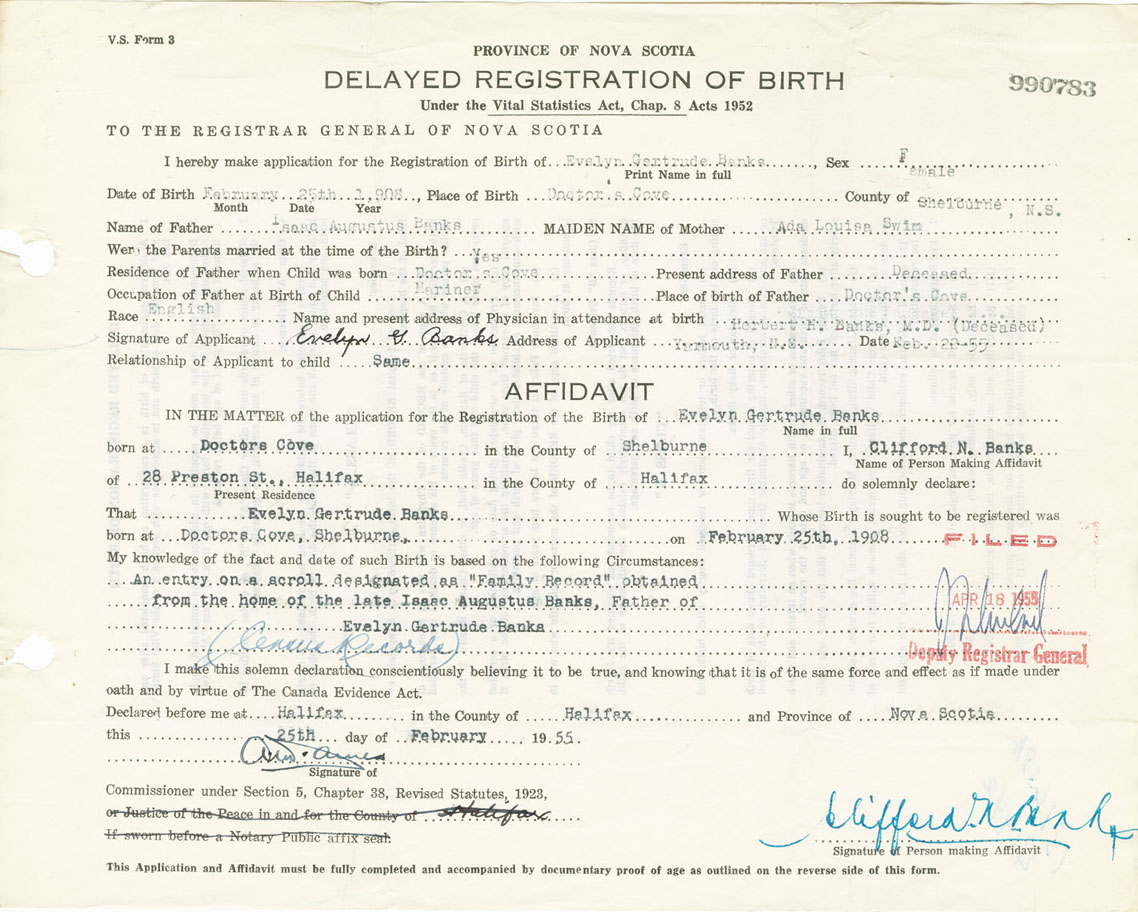 V.S. Form 3
PROVINCE OF NOVA SCOTIA
DELAYED REGISTRATION OF BIRTH
990783
Under the Vital Statistics Act, Chap. 8 Acts 1952
TO THE REGISTRAR GENERAL OF NOVA SCOTIA
I hereby make application for the Registration of Birth of Evelyn Gertrude Banks, Sex Female
Print Name in full
Date of Birth February 25th 1,908, Place of Birth Doctor's Cove County of Shelburne, N.S.
Month Date Year
Name of Father Isaac Augustus Banks MAIDEN NAME of Mother Ada Louisa Swim
Were the Parents married at the time of the Birth? Yes
Residence of Father when Child was born Doctor's Cove Present address of Father Deceased
Occupation of Father at Birth of Child Mariner Place of birth of Father Doctor's Cove
Race English Name and present address of Physician in attendance at birth Herbert H. Banks, M.D. (Deceased)
Signature of Applicant Evelyn G. Banks Address of Applicant Yarmouth, N.S. Date Feb. 55
Relationship of Applicant to child Same
AFFIDAVIT
IN THE MATTER of the application for the Registration of the Birth of Evelyn Gertrude Banks
Name in full
born at Doctors Cove in the County of Shelburne I, Clifford N. Banks
Name of Person Making Affidavit
of 28 Preston St., Halifax in the County of Halifax do solemnly declare:
Present Residence
That Evelyn Gertrude Banks Whose Birth is sought to be registered was
born at Doctors Cove, Shelburne, on February 25th, 1908
FILED
My knowledge of the fact and date of such Birth is based on the following Circumstances:
An entry on a scroll designated as "Family Record" obtained
from the home of the late Isaac Augustus Banks, Father of
APR 18 1955
Evelyn Gertrude Banks
(Census Records)
Deputy Registrar General
I make this solemn declaration conscientiously believing it to be true, and knowing that it is of the same force and effect as if made under
oath and by virtue of The Canada Evidence Act.
Declared before me at Halifax in the County of Halifax and Province of Nova Scotia
this 25th day of February 1955.
Signature of
Commissioner under Section 5, Chapter 38, Revised Statutes, 1923,
or Justice of the Peace in and for the County of Halifax
If sworn before a Notary Public affix seal.
Clifford N Banks
Signature of Person making Affidavit
This Application and Affidavit must be fully completed and accompanied by documentary proof of age as outlined on the reverse side of this form.